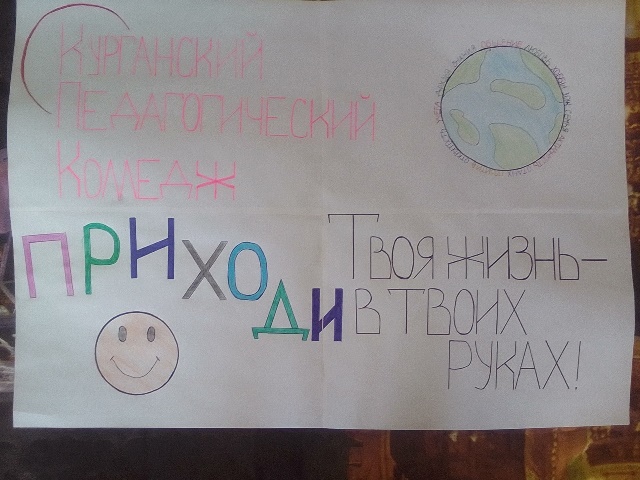 Курганский
Педагогический
Колледж
ПРИХОДИ
Твоя жизнь –
в твоих
руках!